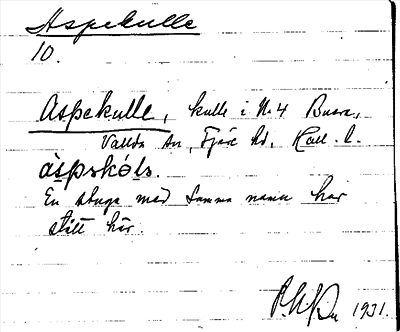 Aspekulle
10.
Aspekulle, kulle i N:4 Buera,
Vallda sn, Fjäre hd, Hall. l.
En stuga med samma namn har
stått här.
1931.